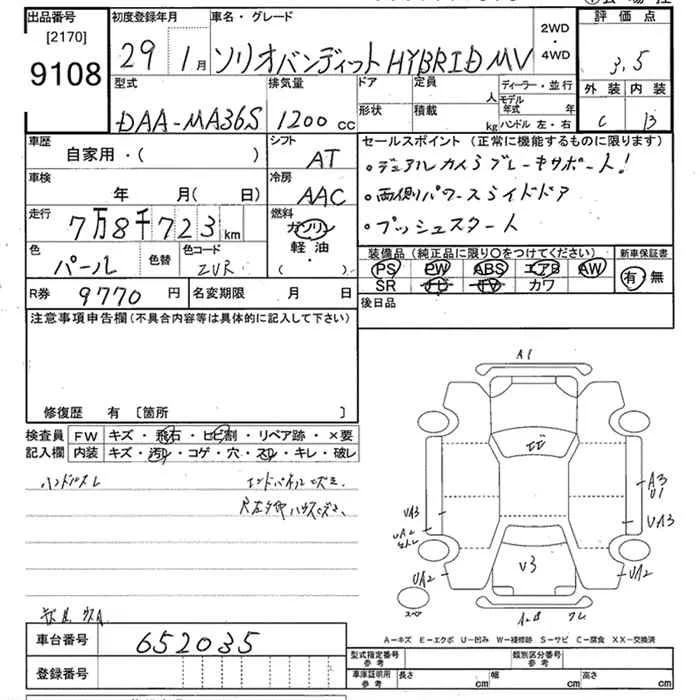 出品番号 初度登録年月 車名・グレード 評価点
[2170] 9108
29年 1月 ソリオバンディット HYBRID MV 2WD・4WD 3.5
外装 内装
C B
型式 排気量 ドア 定員 人 ディーラー・並行
DAA-MA36S 1200cc 形状 積載 kg モデル年式 年
ハンドル 左・右
車歴 シフト セールスポイント (正常に機能するものに限ります)
自家用・( ) AT ・デュアルカメラブレーキサポート!
車検 冷房 ・両側パワースライドドア
年 月(日) AAC ・プッシュスタート
走行 燃料
7万8千723km ガソリン
軽油
・
( )
色 色替 色コード
パール ZVR
装備品 (純正品に限り○をつけてください) 新車保証書
PS PW ABS エアB AW 有・無
SR TV カワ
R券 9770円 名変期限 月 日 後日品
注意事項申告欄(不具合内容等は具体的に記入して下さい)
修復歴 有 [箇所 ]
検査員 FW キズ・飛石・ヒビ割・リペア跡・×要
記入欄 内装 キズ・汚レ・コゲ・穴・スレ・キレ・破レ
ハンドルスレ エンドパネルキズ
A1
A3
U1
UA3 UA3
UA2
UA2 U3 UA2
スペア
A-キズ E-エクボ U-凹み W-補修跡 S-サビ C-腐食 XX-交換済
車台番号 652035
登録番号
型式指定番号 参考 類別区分番号 参考
車庫証明用 参考 長さ cm 幅 cm 高さ cm